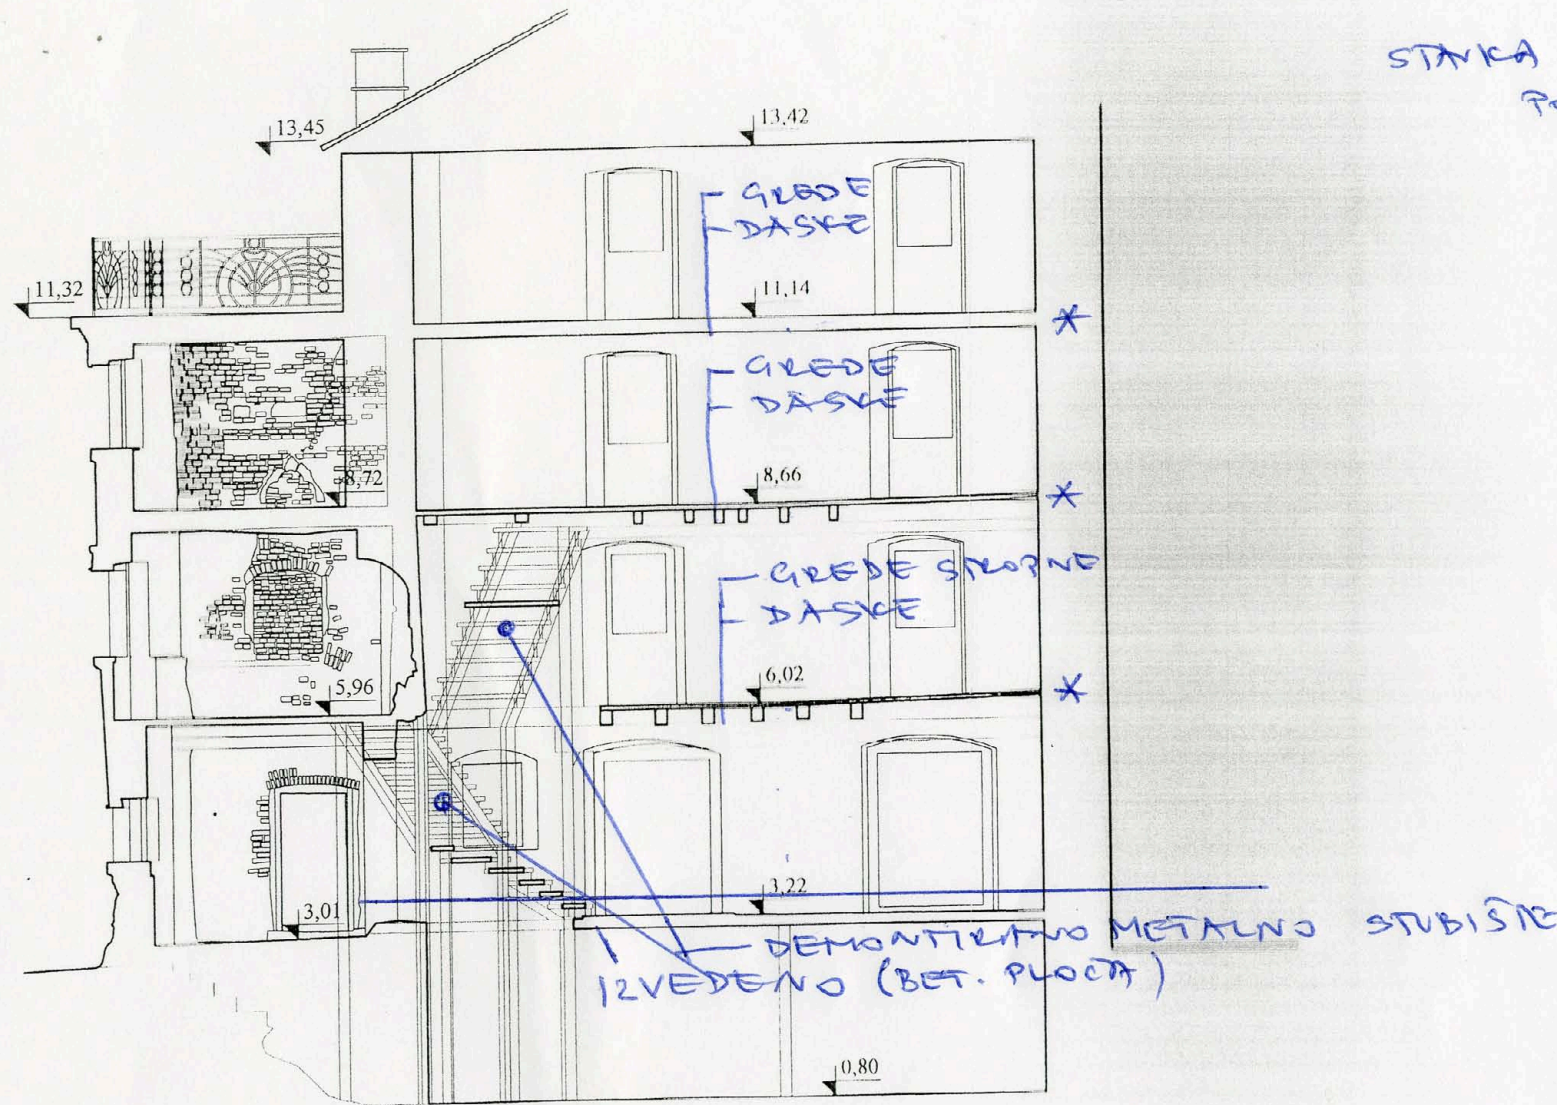 STAVKA
13,45
13,42
GREDE
DASKE
11,32
11,14
*
GREDE
DASKE
8,72
8,66
*
GREDE STROPNE
DASKE
5,96
6,02
*
3,22
3,01
DEMONTIRANO METALNO STUBIŠTE
IZVEDENO (BET. PLOČA)
0,80